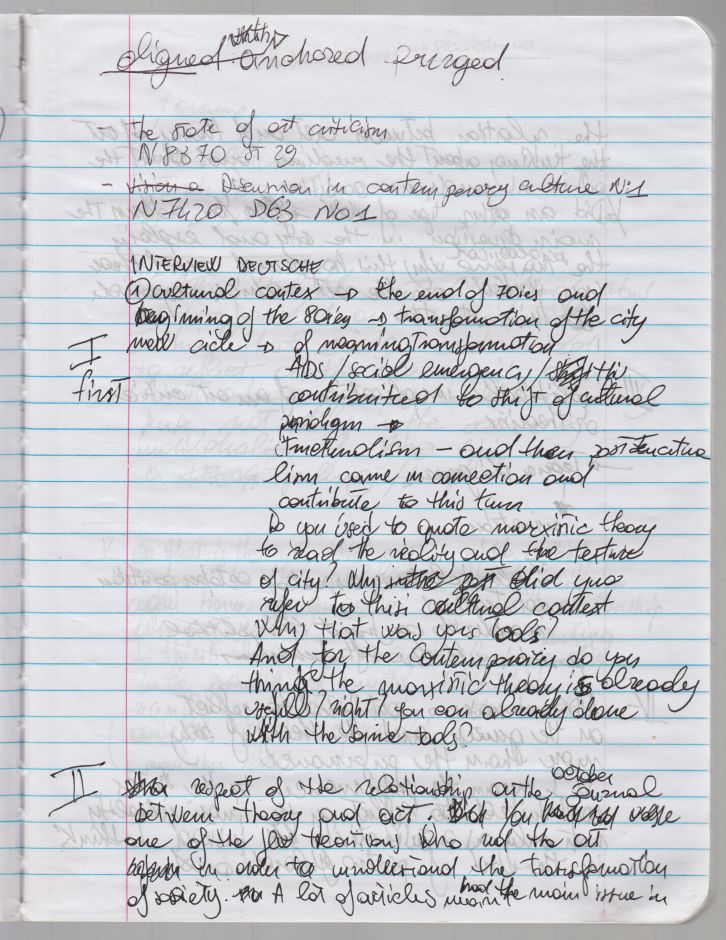 aligned anchored
the state of art criticism
N 8370 ST 29
- Discussion in contemporary culture N:1
N7420 D63 No1
INTERVIEW DEUTSCHE
① cultural contex → the end of 70ies and
beginning of the 80ies → transformation of the city
new cicle → of meaning transformation
I
first
ADS / social emergency / this
contribuited to shift of cultural
paradigm →
structuralism – and then poststructura
lism came in connection and
contribute to this turn
Do you used to quote marxistic theory
to read the reality and the texture
of city? Why did you
refer to this cultural context
Why that was your tools?
And for the contemporary do you
think the marxistic theory is already
usefull? right? you can already done
with the same tools?
II
respect of the relationship on the october journal
between theory and art. You were
one of the few theorians who red the art
in order to understand the transformation
of society. A lot of articles had the main issue in